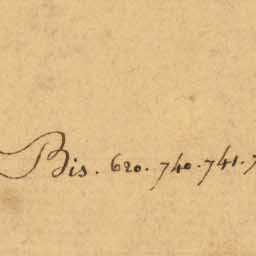 Bis. 620. 740. 741. 7